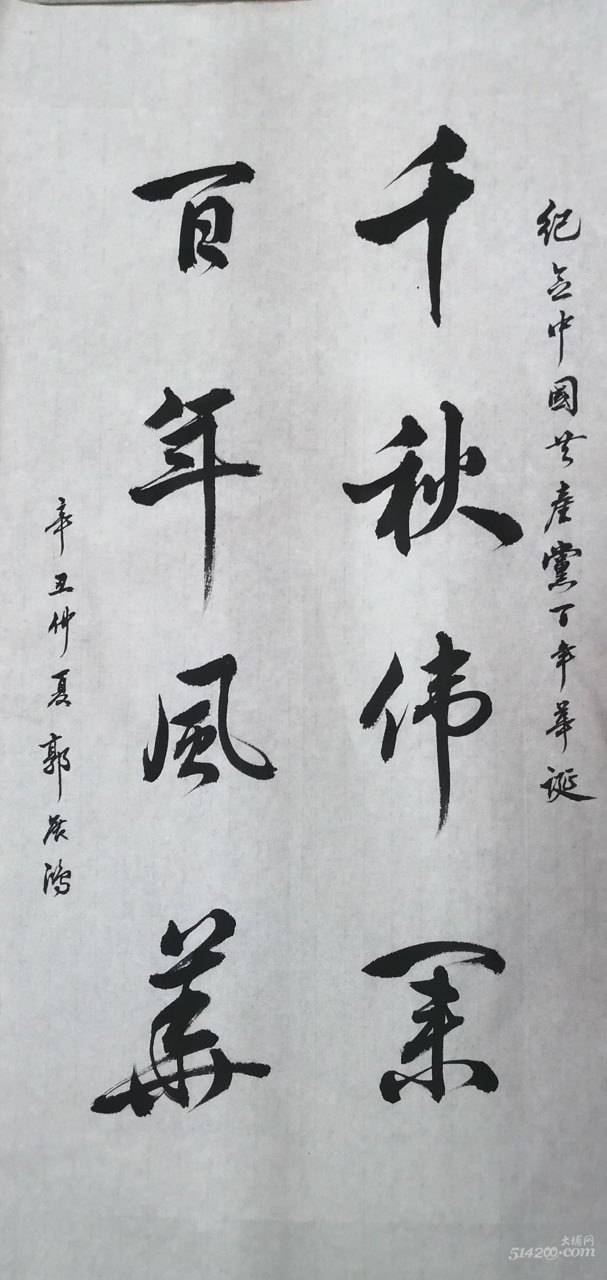 纪念中国共产党百年华诞
千秋伟业
百年風華
辛丑仲夏郭展鴻
大埔网
514200.com